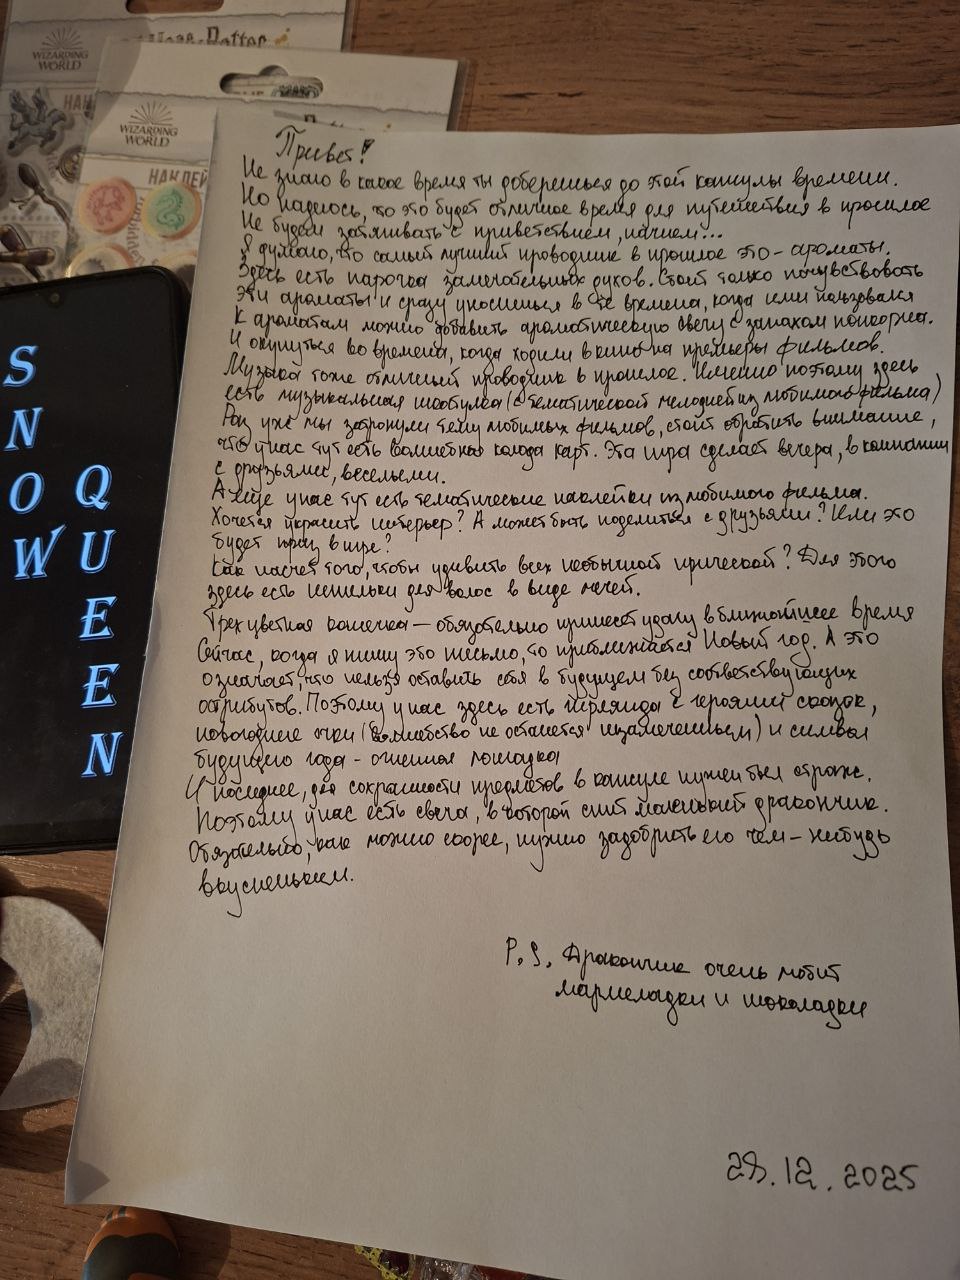 Harry Potter
WIZARDING
WORLD
НАК
WIZARDING
WORLD
НАКЛЕЙ
S
N
O
W
Q
U
E
E
N
Привет!
Не знаю в какое время ты доберешься до этой капсулы времени.
Но надеюсь, что это будет отличное время для путешествия в прошлое
Не будем затягивать с приветствием, начнем...
Я думаю, что самый лучший проводник в прошлое это - ароматы.
Здесь есть парочка замечательных духов. Стоит только почувствовать
эти ароматы и сразу уносишься в те времена, когда ими пользовался
К ароматам можно добавить ароматическую свечу с запахом попкорна.
И окунуться во времена, когда ходили в кино на премьеры фильмов.
Музыка тоже отличный проводник в прошлое. Именно поэтому здесь
есть музыкальная шкатулка (с тематической мелодией из любимого фильма)
Раз уже мы затронули тему любимых фильмов, стоит обратить внимание,
что у нас тут есть волшебная колода карт. Эта игра сделает вечера, в компании
с друзьями, веселыми.
А еще у нас тут есть тематические наклейки из любимого фильма.
Хочется украсить интерьер? А может быть поделиться с друзьями? Или это
будет приз в игре?
Как насчет того, чтобы удивить всех необычной прической? Для этого
здесь есть шпильки для волос в виде мечей.
Трехцветная кошечка — обязательно принесет удачу в ближайшее время
Сейчас, когда я пишу это письмо, то приближается Новый год. А это
означает, что нельзя оставить себя в будущем без соответствующих
атрибутов. Поэтому у нас здесь есть гирлянда с героями сказок,
новогодние очки (волшебство не останется незамеченным) и символ
будущего года - огненная лошадка
И последнее, для сохранности предметов в капсуле нужен был страж.
Поэтому у нас есть свеча, в которой спит маленький дракончик.
Обязательно, как можно скорее, нужно задобрить его чем-нибудь
вкусненьким.
P.S. Дракончик очень любит
мармеладки и шоколадки
28.12.2025